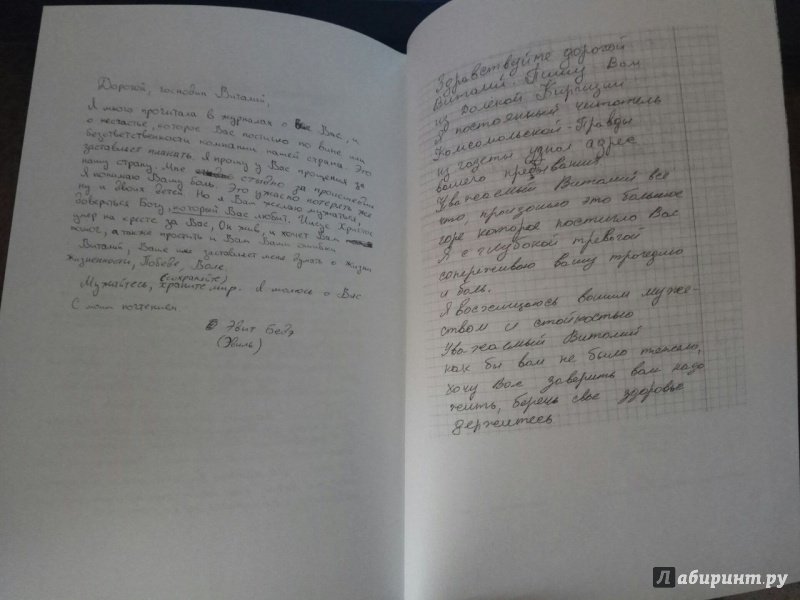 Дорогой, господин Виталий,
Я много прочитала в журналах о Вас, и
о несчастье, которое Вас постигло по вине или
безответственности компании нашей страны. Это
заставляет плакать. Я прошу у Вас прощения за
нашу страну. Мне стыдно за происшествие
Я понимаю Вашу боль. Это ужасно потерять же
ну и двоих детей. Но я Вам желаю мужаться,
довериться Богу, который Вас любит. Иисус Христос
умер на кресте за Вас, Он жив, и хочет Вам
помог, а также простить и Вам Ваши ошибки
Виталий, Ваше имя заставляет меня думать о жизни
жизненности, Победе, Воле.
(сохраняйте)
Мужайтесь, храните мир. Я молюсь о Вас
С моим почтением
Эвит Бейэ
(Эвиль)
Здравствуйте дорогой
Виталий. Пишу Вам
из далекой Киргизии
Я постоянный читатель
Комсомольской-Правды
из газеты узнал адрес
вашего пребывания
Уважаемый Виталий всё
что, произошло это большое
горе которое постигло Вас
Я с глубокой тревогой
сопереживаю вашу трагедию
и боль.
Я восхищаюсь вашим муже-
ством и стойкостью
Уважаемый Виталий
как бы вам не было тяжело,
хочу Вас заверить вам надо
жить, беречь свое здоровье
держитесь
Лабиринт.ру